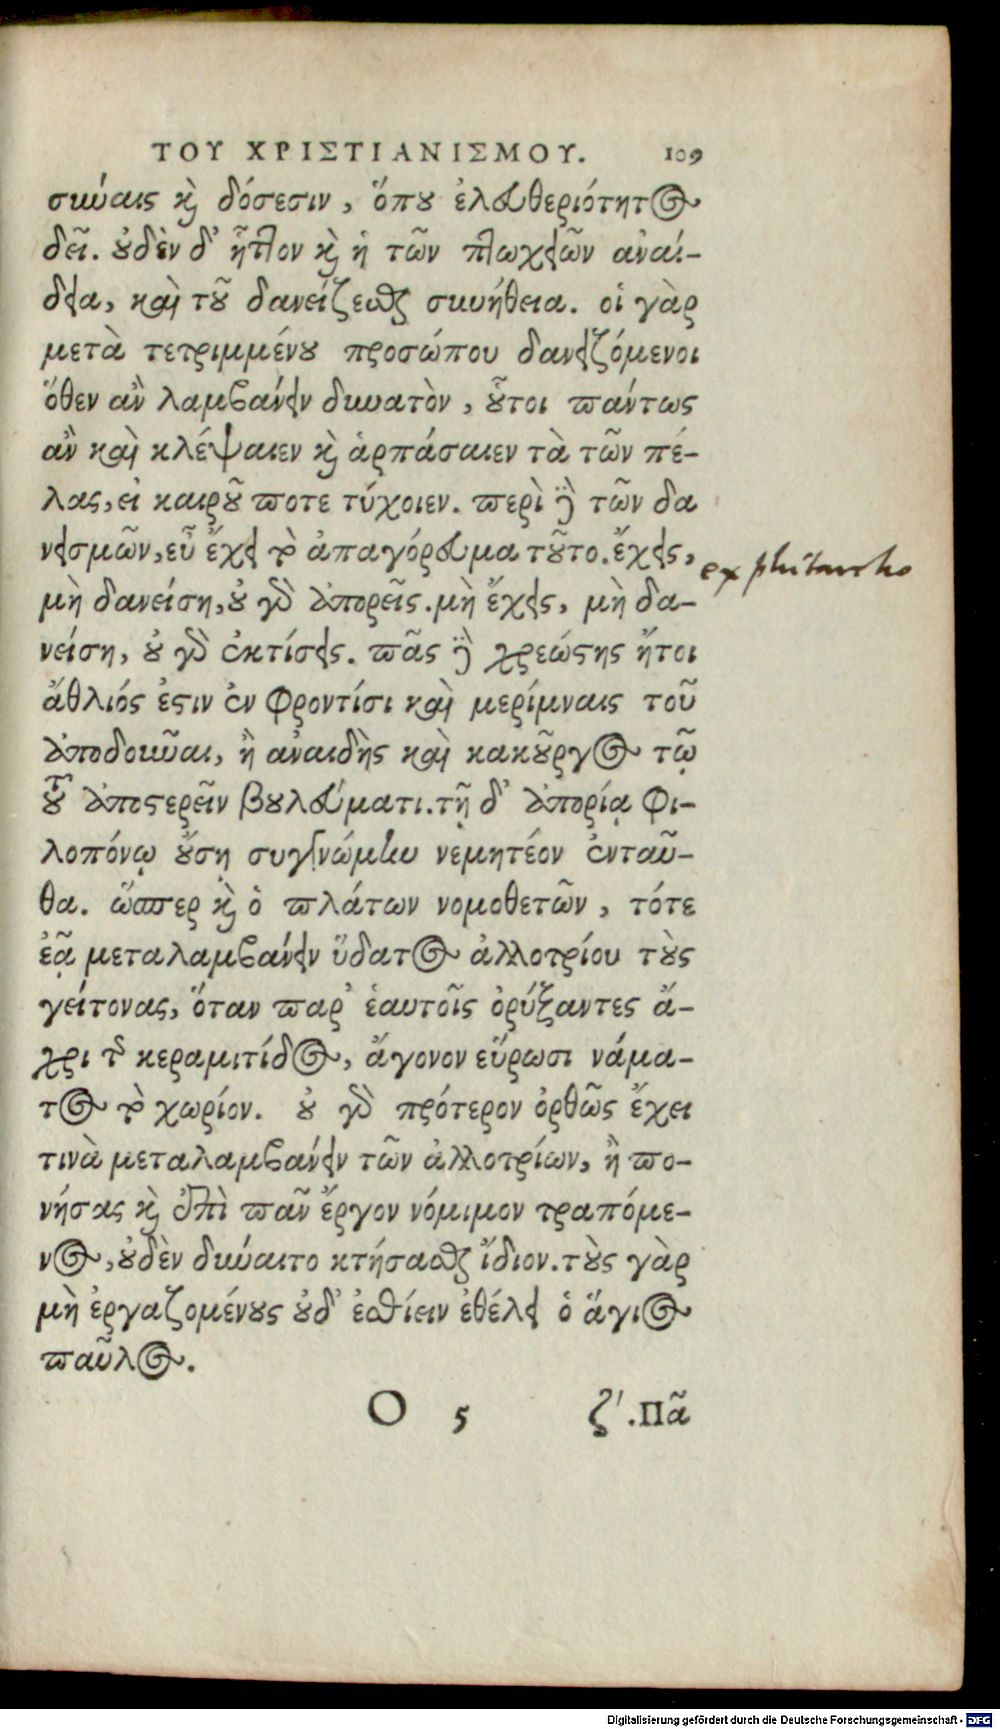 ΤΟΥ ΧΡΙΣΤΙΑΝΙΣΜΟΥ. 109
σκύαις καὶ δόσεσιν, ὅπου ἐλευθεριότητος
δεῖ. οὐδὲν δ' ἧττον καὶ ἡ τῶν πτωχειῶν ἀναί-
δεια, καὶ τοῦ δανείζεσθαι συνήθεια. οἱ γὰρ
μετὰ τετριμμένου προσώπου δανειζόμενοι
ὅθεν ἂν λαμβάνειν δυνατὸν, οὗτοι πάντως
ἂν καὶ κλέψαιεν καὶ ἁρπάσαιεν τὰ τῶν πέ-
λας, εἰ καιροῦ ποτε τύχοιεν. περὶ δὲ τῶν δα
νεισμῶν, εὖ ἔχει τὸ ἀπαγόρευμα τοῦτο. ἔχεις,
μὴ δανείσῃ, οὐ γὰρ ἀπορεῖς. μὴ ἔχεις, μὴ δα-
νείσῃ, οὐ γὰρ ἐκτίσεις. πᾶς δὲ χρεώστης ἤτοι
ἄθλιός ἐστιν ἐν φροντίσι καὶ μερίμναις τοῦ
ἀποδοῦναι, ἢ ἀναιδὴς καὶ κακοῦργος τῷ
τοῦ ἀποστερεῖν βουλεύματι. τῇ δ' ἀπορίᾳ φι-
λοπόνῳ οὔσῃ συγγνώμην νεμητέον ἐνταῦ-
θα. ὥσπερ καὶ ὁ πλάτων νομοθετῶν, τότε
ἐᾷ μεταλαμβάνειν ὕδατος ἀλλοτρίου τοὺς
γείτονας, ὅταν παρ' ἑαυτοῖς ὀρύξαντες ἄ-
χρι τῆς κεραμιτίδος, ἄγονον εὕρωσι νάμα-
τος τὸ χωρίον. οὐ γὰρ πρότερον ὀρθῶς ἔχει
τινὰ μεταλαμβάνειν τῶν ἀλλοτρίων, ἢ πο-
νήσας καὶ ἐπὶ πᾶν ἔργον νόμιμον τραπόμε-
νος, οὐδὲν δύναιτο κτήσασθαι ἴδιον. τοὺς γὰρ
μὴ ἐργαζομένους οὐδ' ἐσθίειν ἐθέλει ὁ ἅγιος
παῦλος.
Ο 5 ζ'. Πᾶ
ex plutarcho
Digitalisierung gefördert durch die Deutsche Forschungsgemeinschaft - DFG